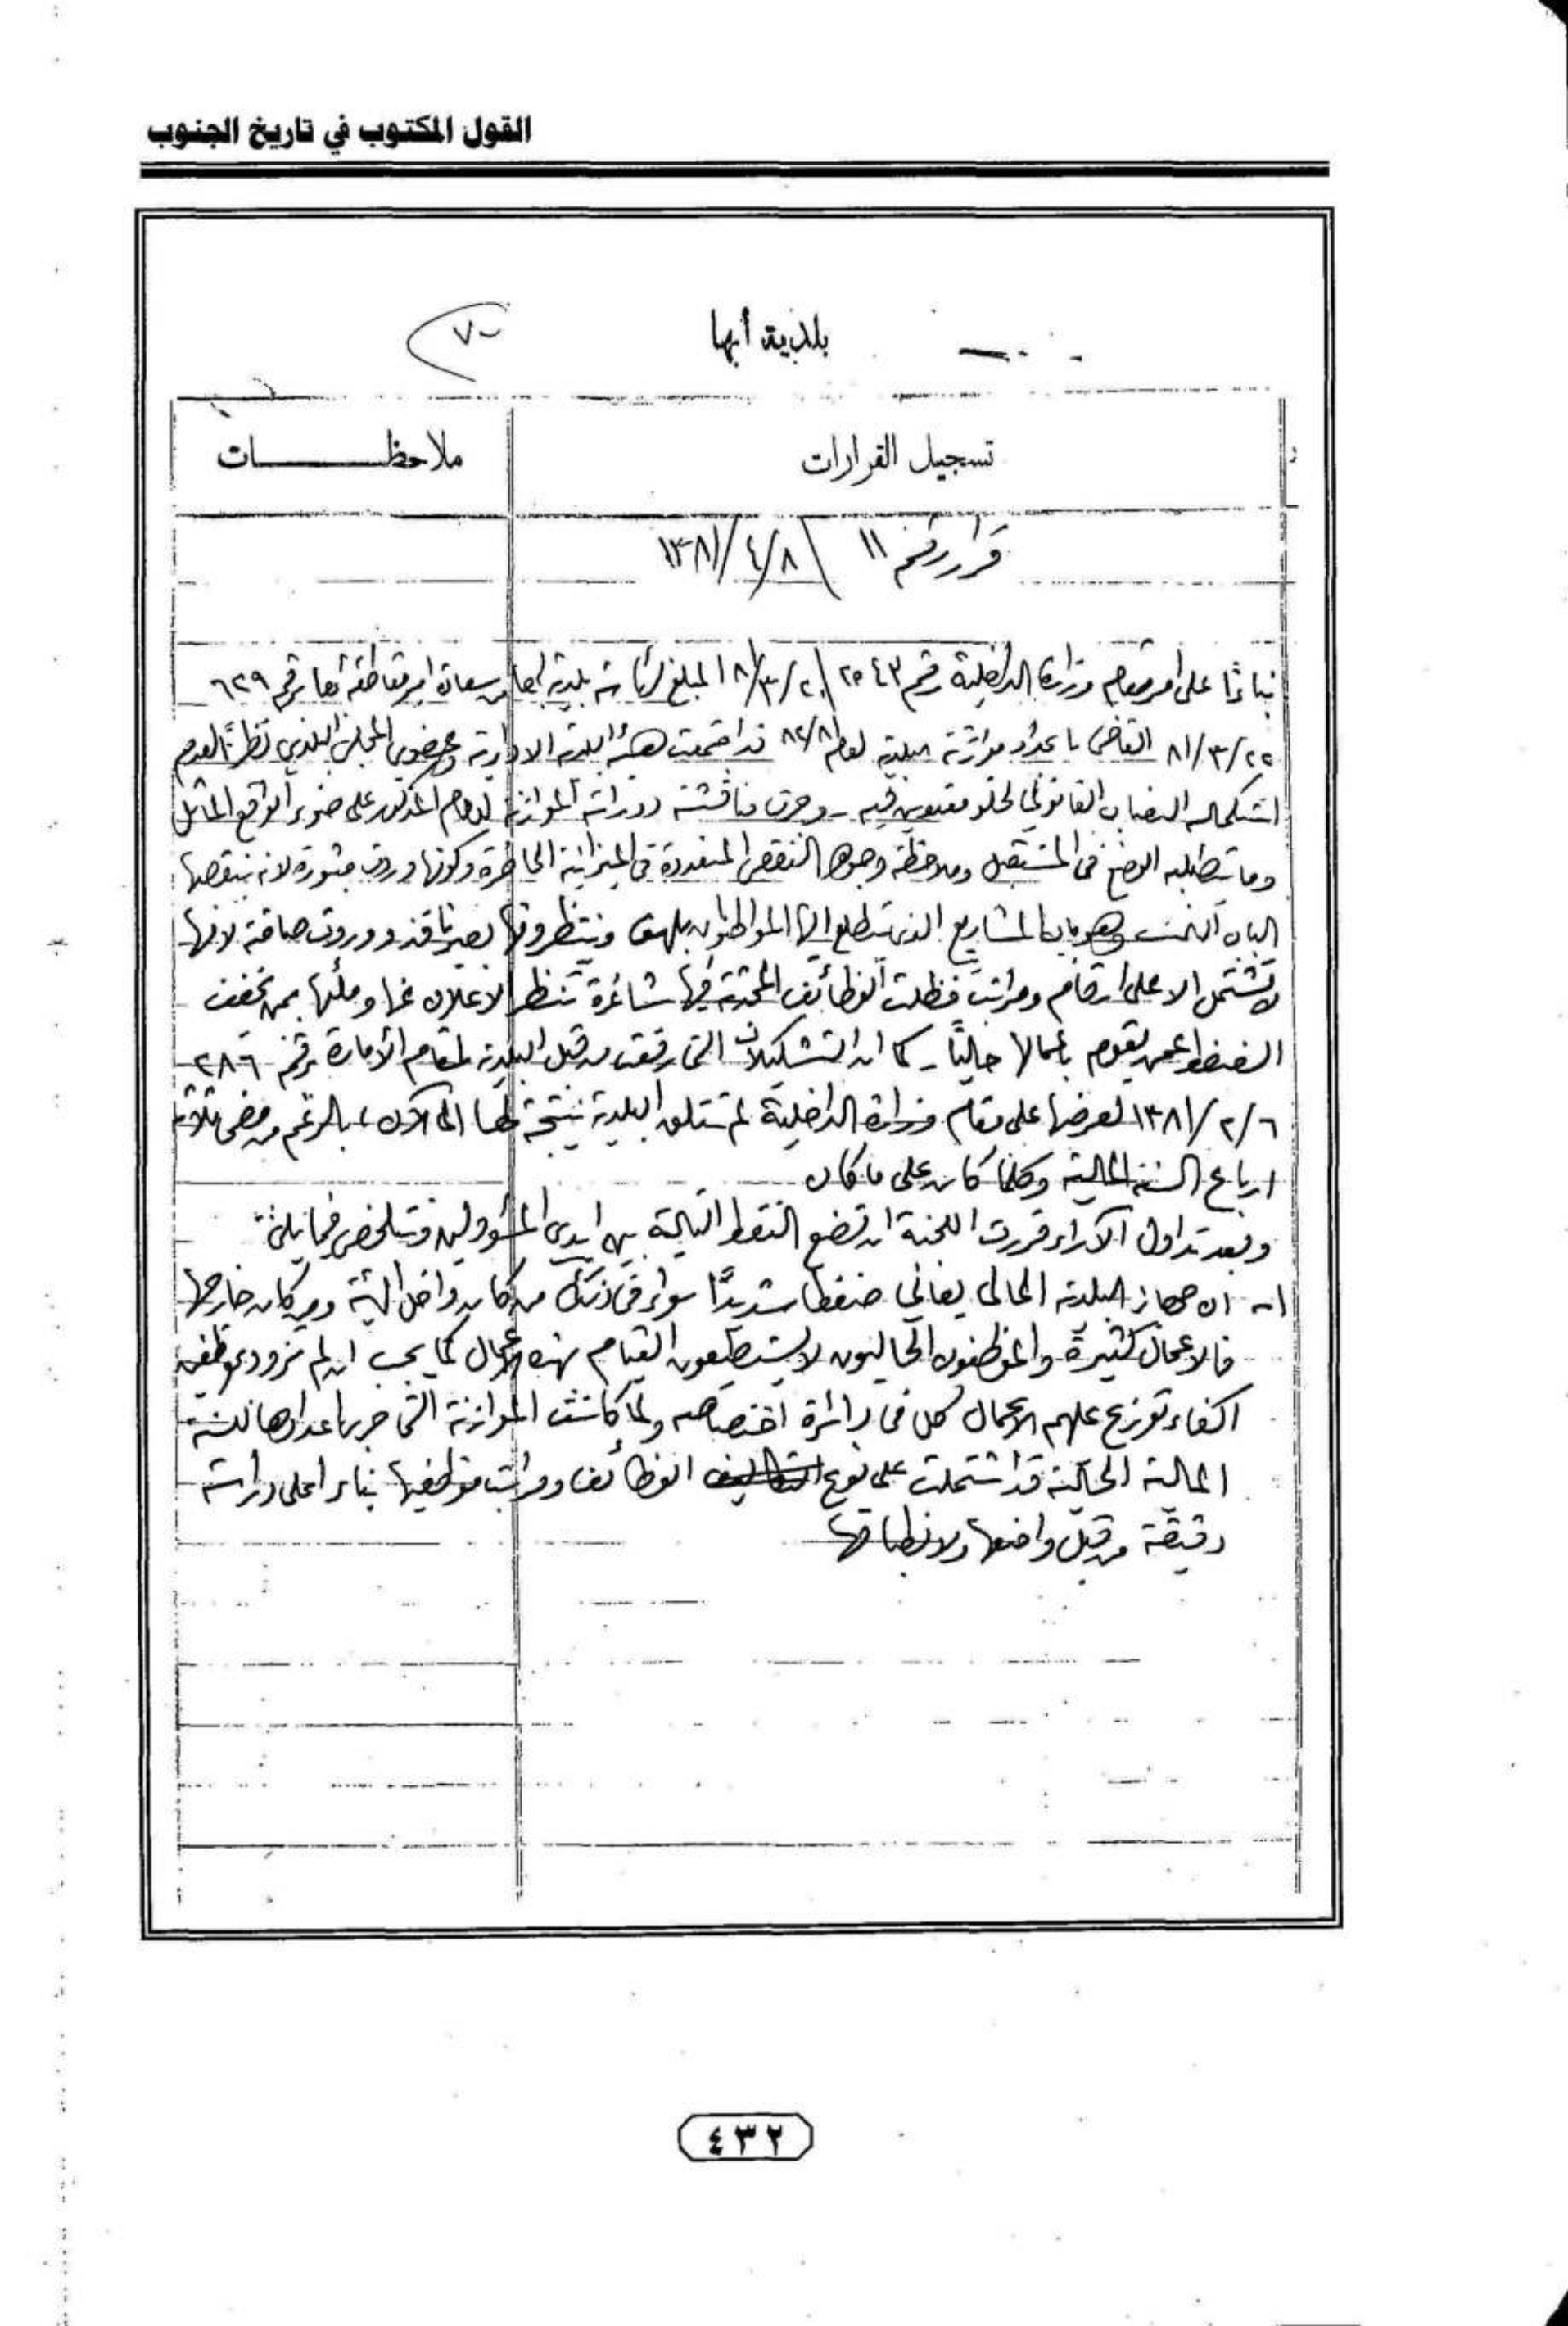 القول المكتوب في تاريخ الجنوب
بلدية أبها
٧٠
تسجيل القرارات
ملاحظـــــات
قرار رقم ١١ ١٣٨١/٤/٨
بناءًا على امر مقام وزارة الداخلية رقم ٢٥٤٣ المبلغ لرئاسة بلدية ابها من سعادة امير مقاطعتها برقم ٦٢٩
٨١/٣/٢٢ القاضي باعداد موازنة البلدية لعام ٨٢/٨١ قد اجتمعت هيئة البلدية الادارية وعضوي المجلس البلدي نظرًا لعدم
استكماله النصاب القانوني لخلو مقعدين فيه - وجرى مناقشة ودراسة الموازنة للعام المذكور على ضوء الواقع الماثل
وما يتطلبه الوضع في المستقبل وملاحظة وجوه النقص المتعددة في الميزانية الحاضرة وكونها وردت مبتورة لانه ينقصها
الباب الثالث وهو باب المشاريع الذي يتطلع اليها المواطنون بلهف وينتظرونها بصبر نافذ ووردت صامتة لانها
لا تشتمل الا على ارقام ومراتب فظلت الوظائف المحدثة فيها شاغرة تنتظر الاعلان عنها وملئها بمن يخفف
الضغط عمن يقوم باعمالها حاليًا - كما ان التشكيلات التي رفعت من قبل البلدية لمقام الأمارة برقم ٢٨٦
١٣٨١/٢/٦ لعرضها على مقام وزارة الداخلية لم تتلق البلدية نتيجة لها الى الآن بالرغم من مضي ثلاثة
ارباع السنة المالية وكلما كان على ما كان
وبعد تداول الآراء قررت اللجنة ان تضع النقط التالية بين ايدي المسؤولين وتتلخص فيما يلي :
١- ان جهاز البلدية الحالي يعاني ضغطا شديدًا سواء في ذلك من كان داخل الهيئة ومن كان خارجها
فالاعمال كثيرة والموظفون الحاليون لا يستطيعون القيام بهذه الاعمال كما يجب ان لم نزود بموظفين
اكفاء توزع عليهم الاعمال كل في دائرة اختصاصه ولما كانت الموازنة التي جرى اعدادها للسنة
المالية الحالية قد اشتملت على نوع الوظائف ومراتب موظفيها بناء على دراسة
دقيقة من قبل واضعها ولانطباقها
٤٣٢